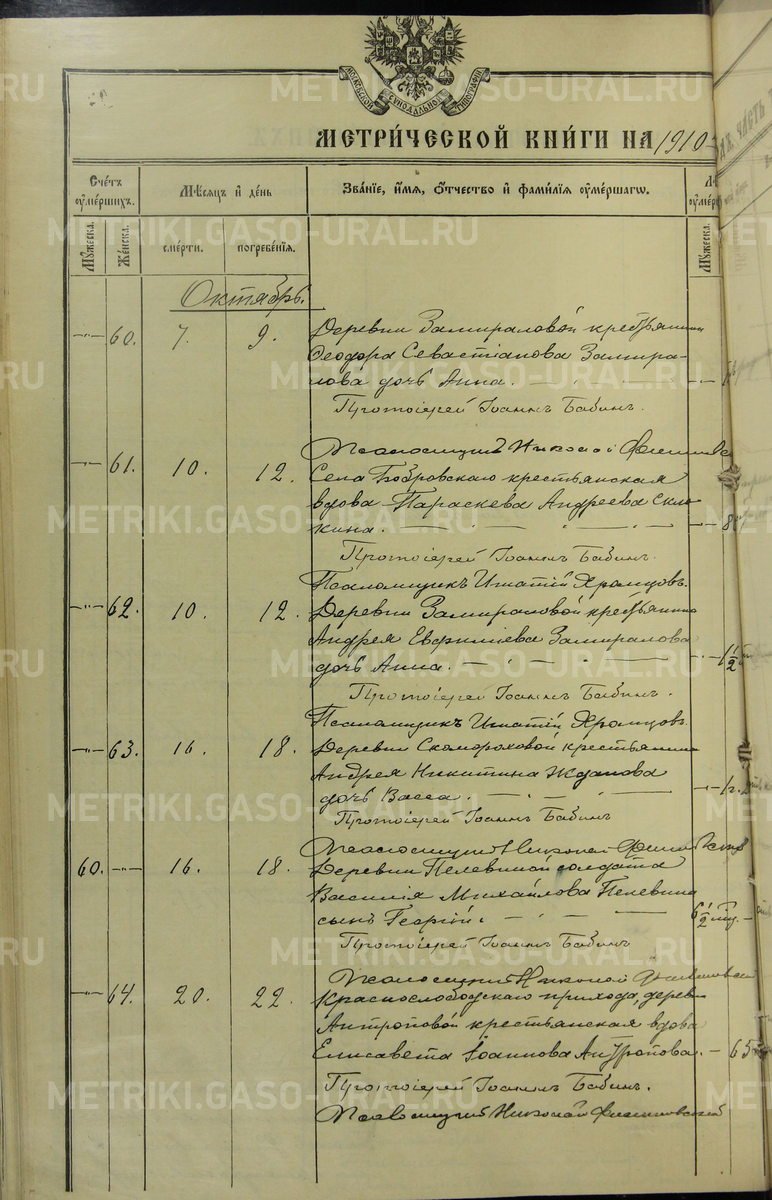 МОСКОВСКОЙ СѴНОДАЛЬНОЙ ТИПОГРАФІИ
МЕТРИ́ЧЕСКОЙ КНИ́ГИ НА 1910
Счётъ ᲂу҆ме́ршихъ.
Мѣ́сяцъ и҆ де́нь
Зва́нїе, и҆́мѧ, ѻ҆́тчество и҆ фами́лїѧ ᲂу҆ме́ршагѡ.
Мꙋ́жеска.
Же́нска.
сме́рти.
погребе́нїѧ.
Мꙋ́жеска.
Октябрь.
60. 7. 9. Деревни Замираловой крестьянина
Ѳеодора Севастіанова Замира-
лова дочь Анна.
Протоіерей Іоаннъ Бабинъ.
Псаломщикъ Николай
61. 10. 12. Села Бобровскаго крестьянская
вдова Параскева Андреева
кина.
Протоіерей Іоаннъ Бабинъ.
Псаломщикъ Игнатій Храмцовъ.
62. 10. 12. Деревни Замираловой крестьянина
Андрея Евфиміева Замиралова
дочь Анна. 1 1/2
Протоіерей Іоаннъ Бабинъ.
Псаломщикъ Игнатій Храмцовъ.
63. 16. 18. Деревни Скомороховой крестьянина
Андрея Никитина Жданова
дочь Васса. 1 г.
Протоіерей Іоаннъ Бабинъ
Псаломщикъ Николай
60. 16. 18. Деревни Пелевиной солдата
Василія Михайлова Пелевина
сынъ Георгій. 6 1/2
Протоіерей Іоаннъ Бабинъ
Псаломщикъ Николай
64. 20. 22. Краснослободскаго прихода, деревни
Антроповой крестьянская вдова
Елисавета Іоаннова Антропова. 65
Протоіерей Іоаннъ Бабинъ.
Псаломщикъ Николай
METRIKI.GASO-URAL.RU